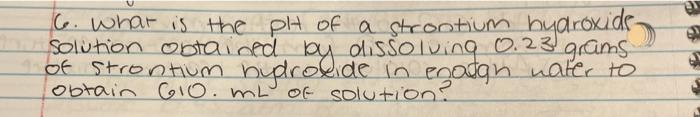 6. What is the pH of a strontium hydroxide
solution obtained by dissolving 0.23 grams
of strontium hydroxide in enough water to
obtain 610. mL of solution?